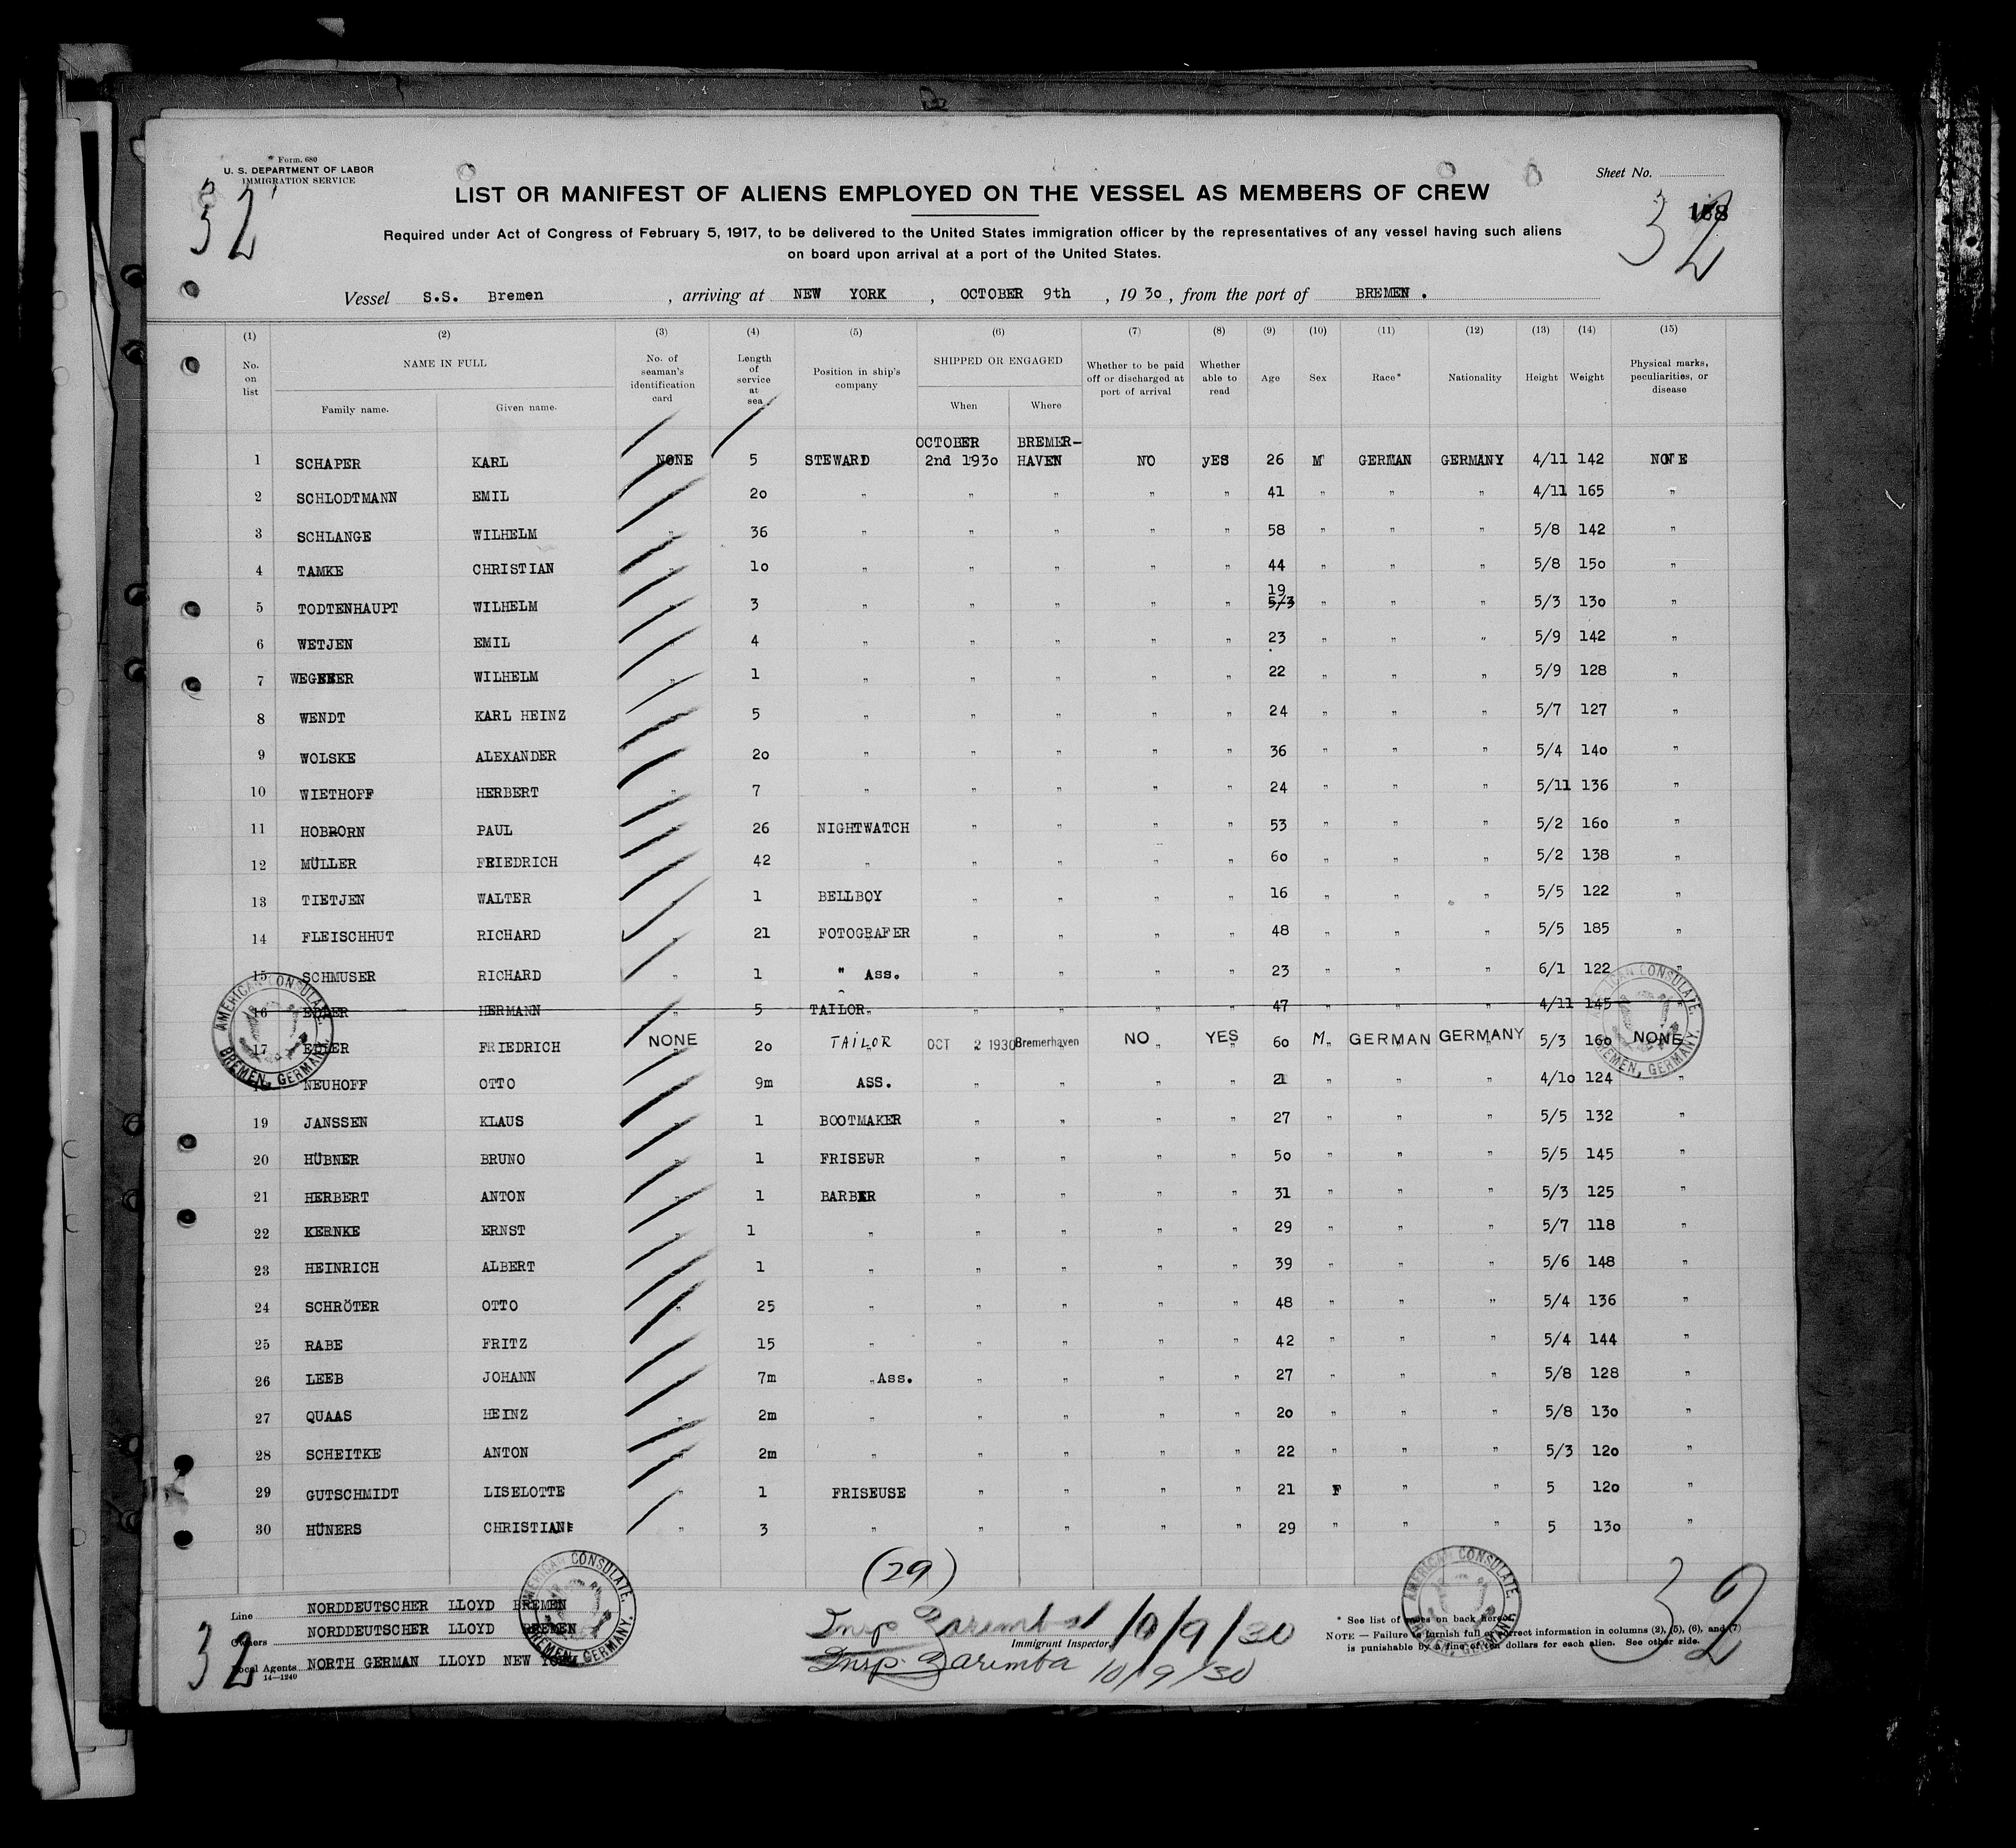 Form. 680
U. S. DEPARTMENT OF LABOR
IMMIGRATION SERVICE
Sheet No.
32
32
LIST OR MANIFEST OF ALIENS EMPLOYED ON THE VESSEL AS MEMBERS OF CREW
Required under Act of Congress of February 5, 1917, to be delivered to the United States immigration officer by the representatives of any vessel having such aliens
on board upon arrival at a port of the United States.
Vessel S.S. Bremen , arriving at NEW YORK , OCTOBER 9th , 19 3o , from the port of BREMEN .
(1) (2) (3) (4) (5) (6) (7) (8) (9) (10) (11) (12) (13) (14) (15)
No. on list NAME IN FULL Family name. Given name. No. of seaman's identification card Length of service at sea Position in ship's company SHIPPED OR ENGAGED When Where Whether to be paid off or discharged at port of arrival Whether able to read Age Sex Race* Nationality Height Weight Physical marks, peculiarities, or disease
OCTOBER BREMER-
1 SCHAPER KARL NONE 5 STEWARD 2nd 193o HAVEN NO yES 26 M GERMAN GERMANY 4/11 142 NONE
2 SCHLODTMANN EMIL 2o " " " " " 41 " " " 4/11 165 "
3 SCHLANGE WILHELM " 36 " " " " " 58 " " " 5/8 142 "
4 TAMKE CHRISTIAN " 1o " " " " " 44 " " " 5/8 15o "
19
5 TODTENHAUPT WILHELM " 3 " " " " " 5/3 " " " 5/3 13o "
6 WETJEN EMIL " 4 " " " " " 23 " " " 5/9 142 "
7 WEGENER WILHELM " 1 " " " " " 22 " " " 5/9 128 "
8 WENDT KARL HEINZ 5 " " " " " 24 " " " 5/7 127 "
9 WOLSKE ALEXANDER 2o " " " " " 36 " " " 5/4 14o "
10 WIETHOFF HERBERT " 7 " " " " " 24 " " " 5/11 136 "
11 HOBRORN PAUL 26 NIGHTWATCH " " " " 53 " " " 5/2 16o "
12 MÜLLER FRIEDRICH 42 " " " " " 6o " " " 5/2 138 "
13 TIETJEN WALTER 1 BELLBOY " " " " 16 " " " 5/5 122 "
14 FLEISCHHUT RICHARD " 21 FOTOGRAFER " " " " 48 " " " 5/5 185 "
15 SCHMUSER RICHARD " 1 " Ass. " " " " 23 " " " 6/1 122 "
16 EDLER HERMANN " 5 TAILOR " " " " 47 " " " 4/11 145
17 EDLER FRIEDRICH NONE 2o TAILOR OCT 2 1930 Bremerhaven NO YES 6o M GERMAN GERMANY 5/3 16o NONE
NEUHOFF OTTO 9m ASS. " " " " 21 " " " 4/1o 124 "
19 JANSSEN KLAUS " 1 BOOTMAKER " " " " 27 " " " 5/5 132 "
20 HÜBNER BRUNO 1 FRISEUR " " " " 5o " " " 5/5 145 "
21 HERBERT ANTON " 1 BARBER " " " " 31 " " " 5/3 125 "
22 KERNKE ERNST " 1 " " " " " 29 " " " 5/7 118 "
23 HEINRICH ALBERT 1 " " " " " 39 " " " 5/6 148 "
24 SCHRÖTER OTTO " 25 " " " " " 48 " " " 5/4 136 "
25 RABE FRITZ 15 " " " " " 42 " " " 5/4 144 "
26 LEEB JOHANN 7m " Ass. " " " " 27 " " " 5/8 128 "
27 QUAAS HEINZ " 2m " " " " " 2o " " " 5/8 13o "
28 SCHEITKE ANTON " 2m " " " " " 22 " " " 5/3 12o "
29 GUTSCHMIDT LISELOTTE " 1 FRISEUSE " " " " 21 F " " 5 12o "
30 HÜNERS CHRISTIANE " 3 " " " " " 29 " " " 5 13o "
AMERICAN CONSULATE. BREMEN, GERMANY.
AMERICAN CONSULATE. BREMEN, GERMANY.
(29)
AMERICAN CONSULATE. BREMEN, GERMANY.
AMERICAN CONSULATE. BREMEN, GERMANY.
Line NORDDEUTSCHER LLOYD BREMEN
Owners NORDDEUTSCHER LLOYD BREMEN
Local Agents NORTH GERMAN LLOYD NEW YORK
14—1240
Insp Zaremba 10/9/30
Immigrant Inspector.
Insp. Zaremba 10/9/30
* See list of races on back hereof.
NOTE — Failure to furnish full or correct information in columns (2), (5), (6), and (7)
is punishable by a fine of ten dollars for each alien. See other side.
32
32